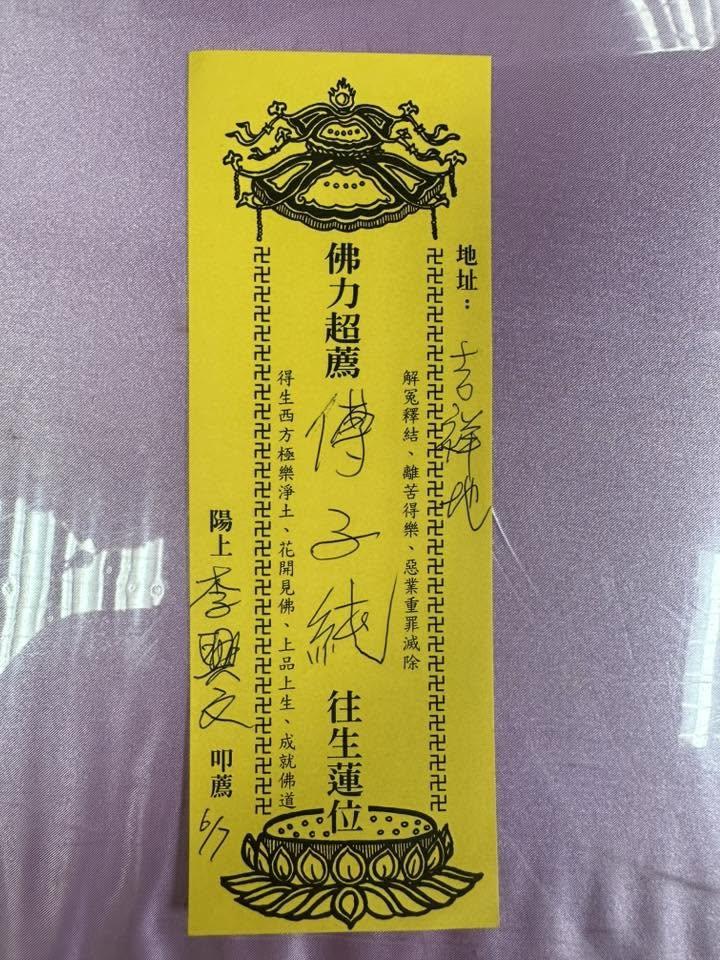 地址：吉祥地
解冤釋結、離苦得樂、惡業重罪滅除
佛力超薦 傅子純 往生蓮位
得生西方極樂淨土、花開見佛、上品上生、成就佛道
陽上 李興文 叩薦 6/7